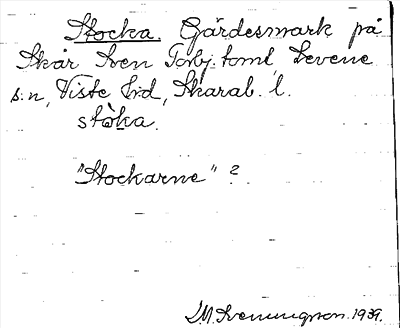 Stocka. Gärdesmark på
Skår Sven Torbj. toml, Levene
s:n, Viste hd, Skarab. l.
stòka.
"Stockarne" ?
Svenungsson. 1939.